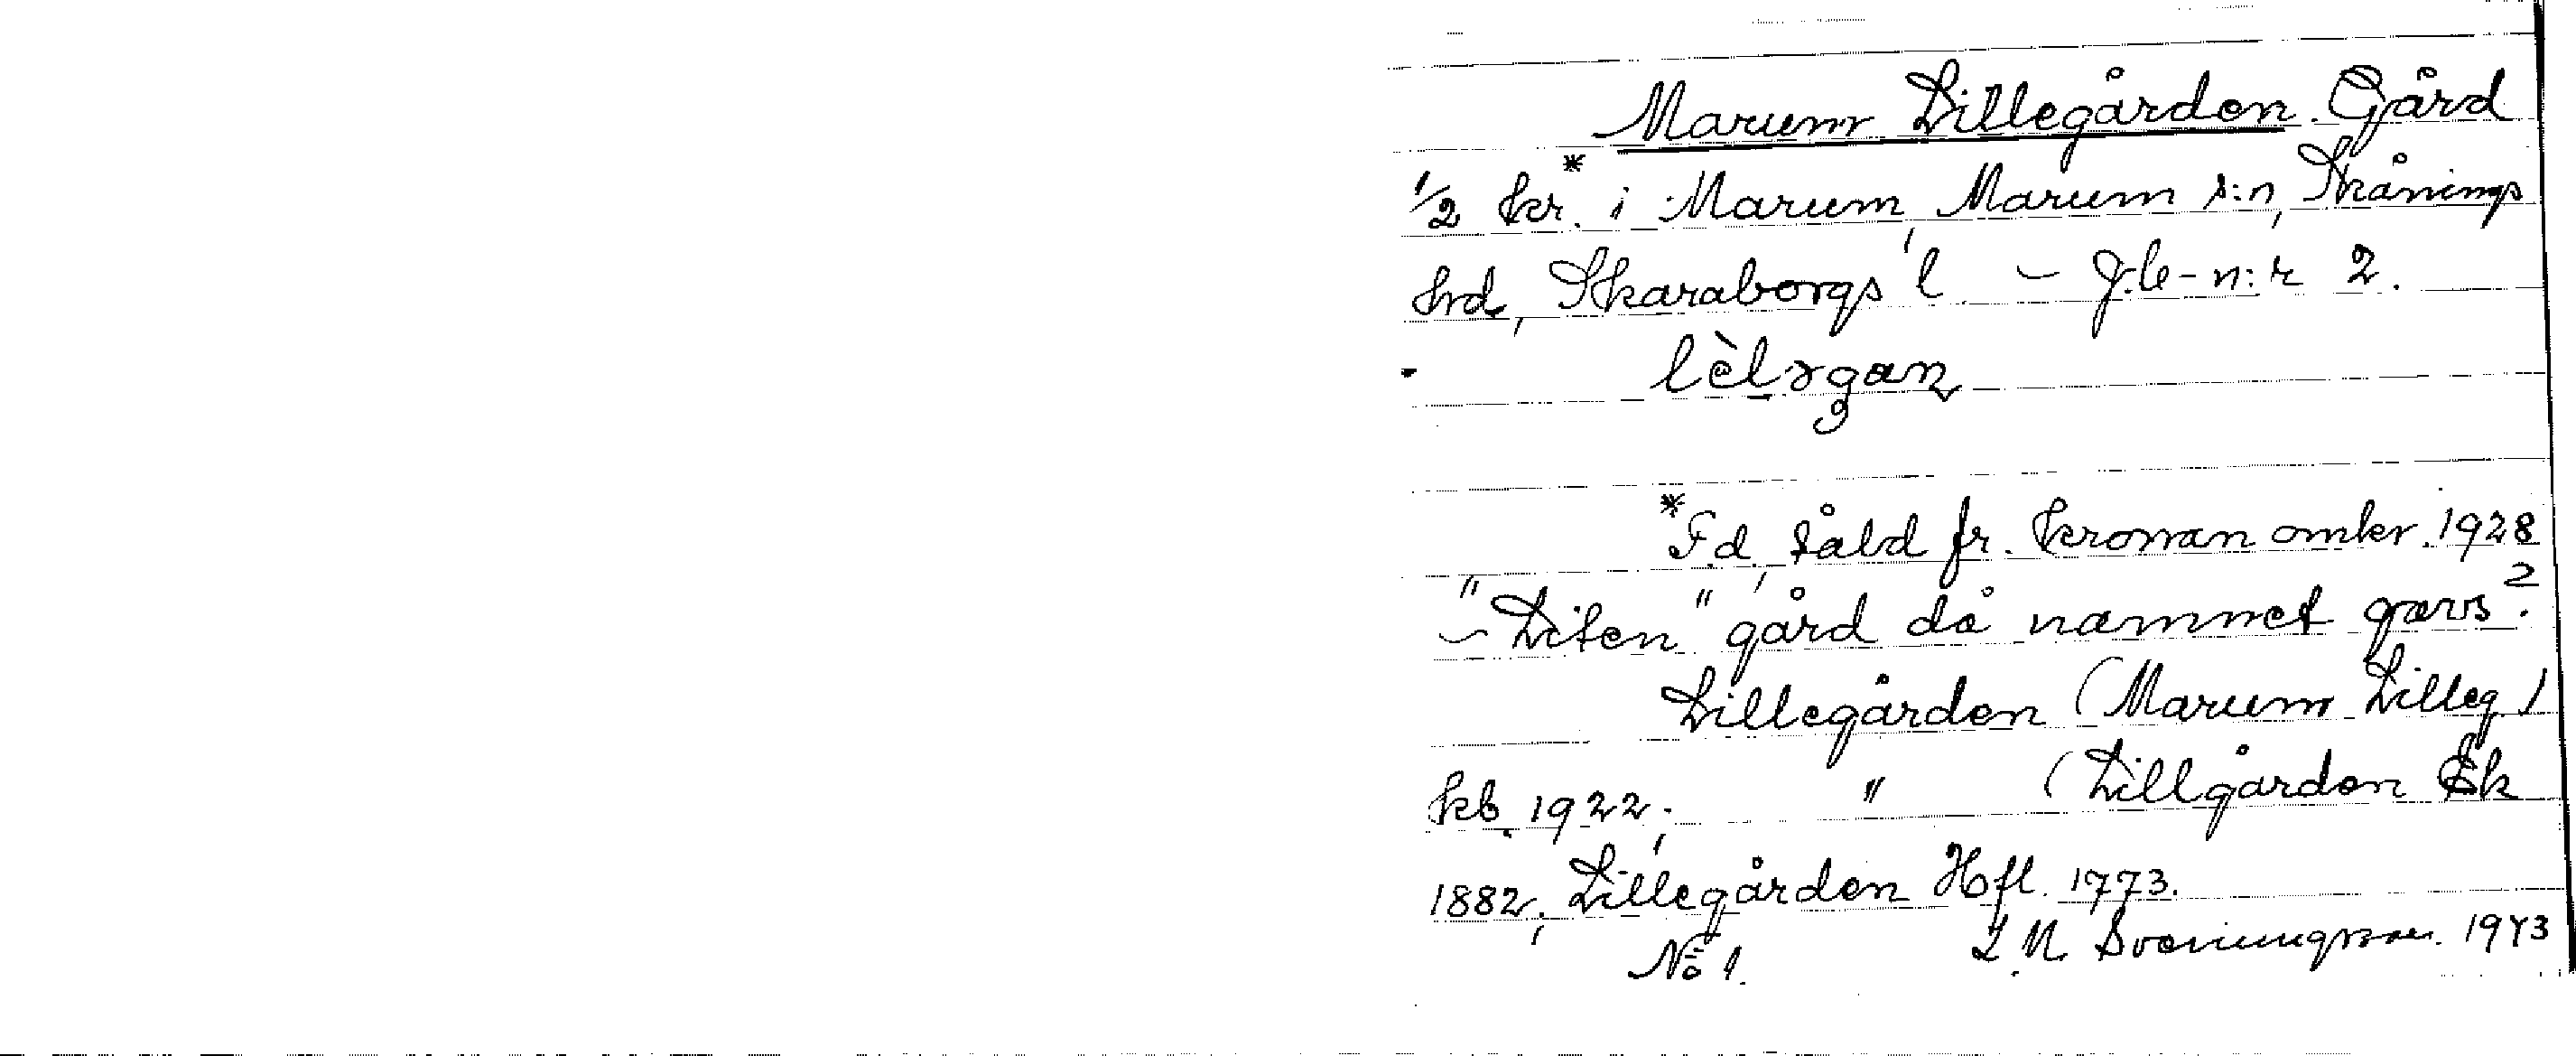 Marum Lillegården. Gård
1/2 kr.* i Marum, Marum s:n, Skånings
hrd, Skaraborgs l. – J.b-n:r 2.
*F.d., såld fr. kronan omkr. 1928
– "Liten" gård då namnet gavs?
Lillegården (Marum Lilleg.)
kb. 1922; " (Lillgården Ek
1882; Lillegården Hfl. 1773.
No 1. Sveningsson. 1943